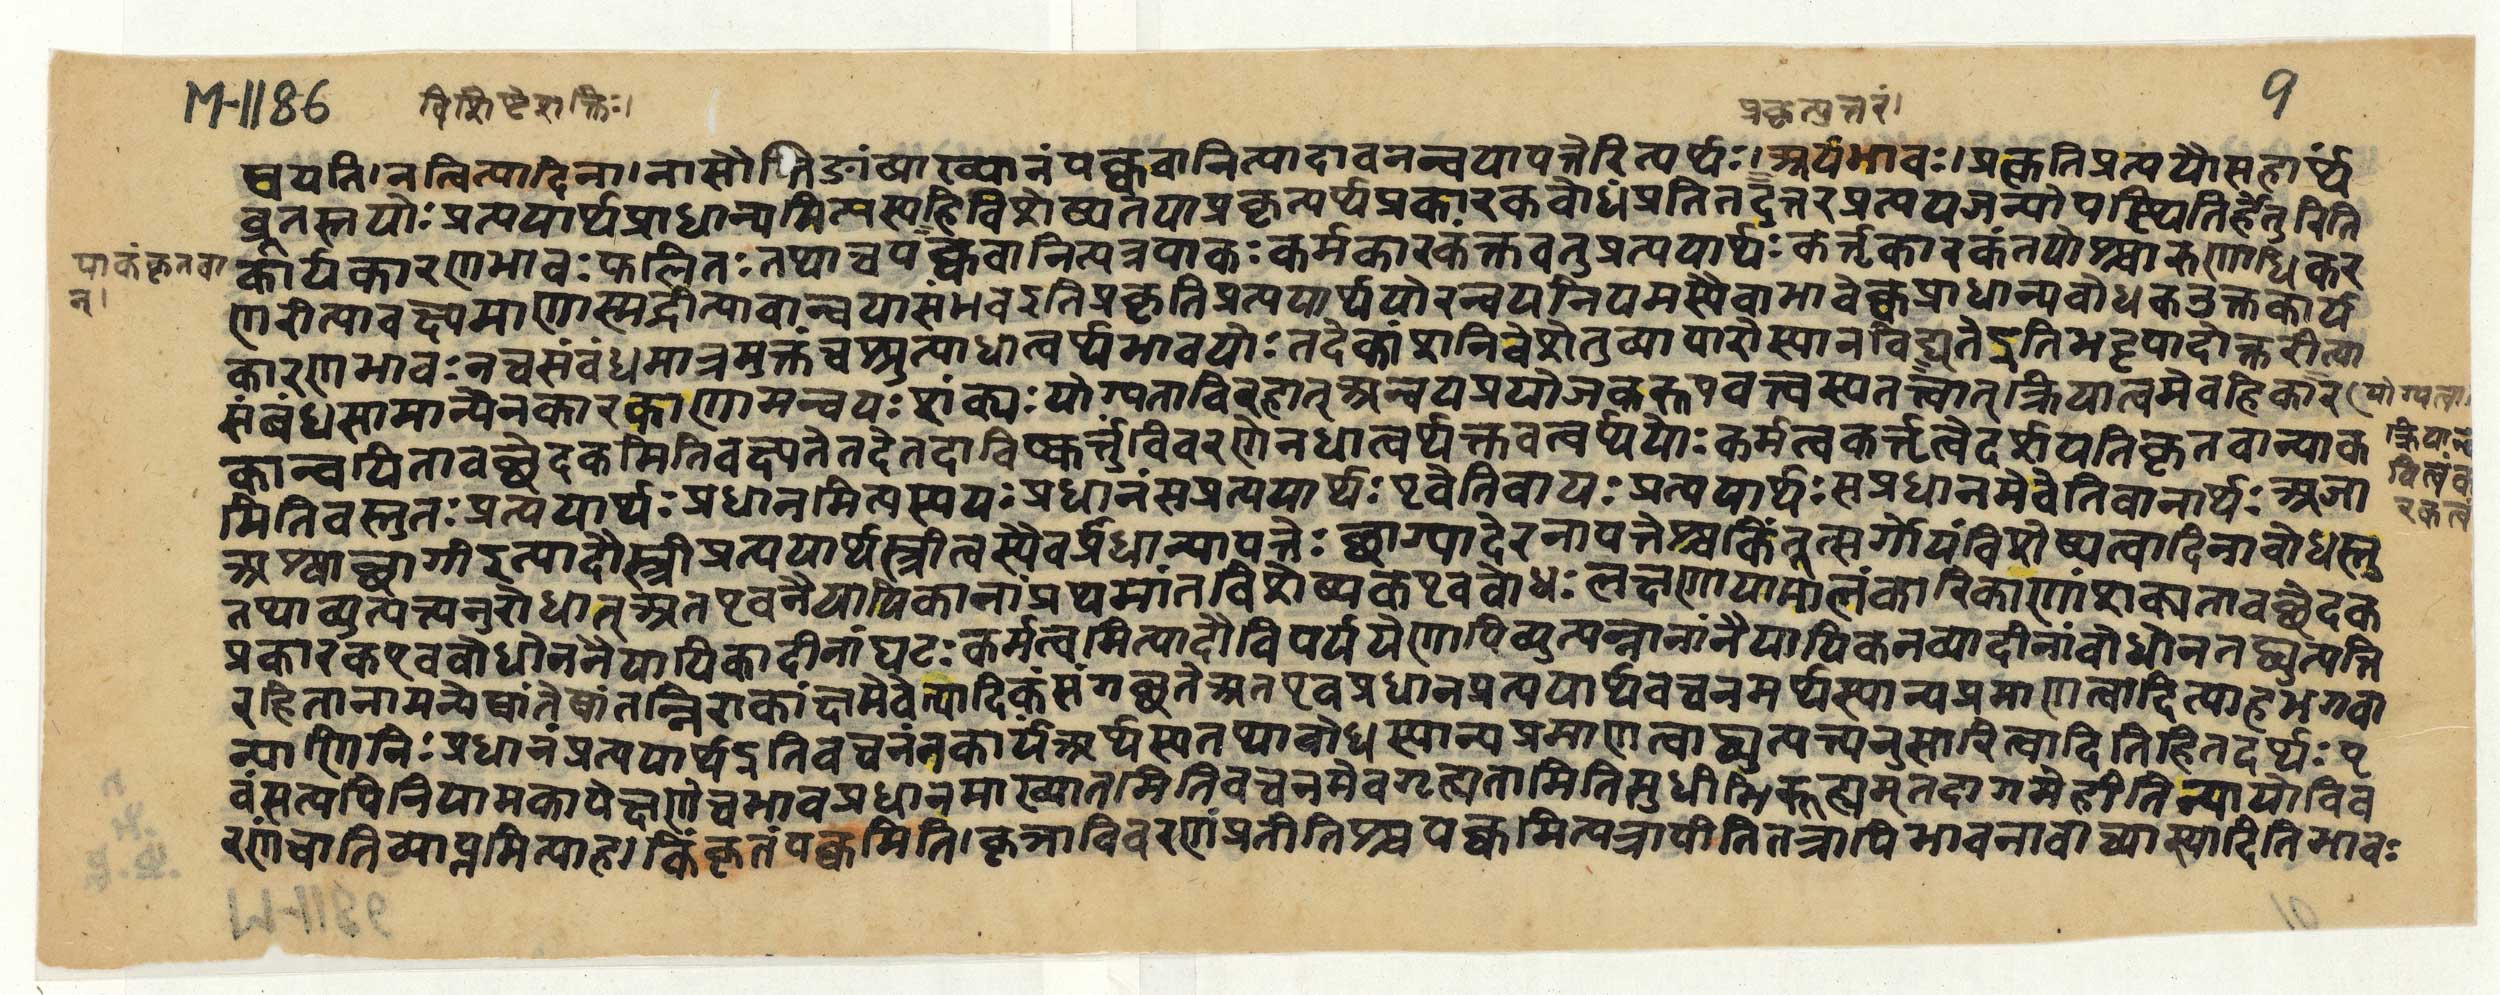 M-1186
विशिष्टशक्तिः।
प्रकृत्युत्तरं।
9
षयति।नत्वित्यादिना।नासौतिङांव्याख्यानंपक्ववानित्यादावनन्वयापत्तेरित्यर्थः।अयंभावः।प्रकृतिप्रत्ययौसहार्थं
ब्रूतस्तयोःप्रत्ययार्थप्राधान्यमित्यस्यहिविशेष्यतयाप्रकृत्यर्थप्रकारकबोधंप्रतितदुत्तरप्रत्ययजन्योपस्थितिर्हेतुरिति
पाकंकृतवा
न्।
कार्यकारणभावःफलितःतथाचपक्ववानित्यत्रपाकःकर्मकारकंक्तवतुप्रत्ययार्थःकर्तृकारकंतयोश्चारुणाधिकर
णरीत्यावक्ष्यमाणास्मद्रीत्यावान्वयासंभवइतिप्रकृतिप्रत्ययार्थयोरन्वयनियमस्यैवाभावेक्वप्राधान्यबोधकउक्तकार्य
कारणभावःनचसंबंधमात्रमुक्तंचश्रुत्याधात्वर्थभावयोःतदेकांशनिवेशेतुव्यापारोस्यानविद्यतेइतिभट्टपादोक्तरीत्या
संबंधसामान्येनकारकाणामन्वयःशंक्यःयोग्यताविरहात्अन्वयप्रयोजकरूपवत्त्वस्यतत्त्वात्क्रियात्वमेवहिकार
योग्यत्वा।
कान्वयितावच्छेदकमितिवक्ष्यतेतदेतदाविष्कर्त्तुंविवरणेनधात्वर्थक्तवत्वर्थयोःकर्मत्वकर्त्तृत्वेदर्शयतिकृतवान्पाक
मितिवस्तुतःप्रत्ययार्थःप्रधानमित्यस्ययःप्रधानंसप्रत्ययार्थःएवेतिवायःप्रत्ययार्थःसप्रधानमेवेतिवानार्थःअजा
अश्वाच्छागीइत्यादौस्त्रीप्रत्ययार्थस्त्रीत्वस्यैवप्राधान्यापत्तेःछाग्यादेरनापत्तेश्चकिंतूत्सर्गोयंविशेष्यत्वादिनाबोधस्तु
तथाव्युत्पत्त्यनुरोधात्अतएवनैयायिकानांप्रथमांतविशेष्यकएवबोधःलक्षणायामालंकारिकाणांशक्यतावच्छेदक
प्रकारकएवबोधोननैयायिकादीनांघटःकर्मत्वमित्यादौविपर्ययेणापिव्युत्पन्नानांनैयायिकनव्यादीनांबोधोनतद्व्युत्पत्ति
रहितानामन्येषांतेषांतन्निराकांक्षमेवेत्यादिकंसंगच्छतेअतएवप्रधानप्रत्ययार्थवचनमर्थस्यान्यप्रमाणत्वादित्याहभगवा
न्पाणिनिःप्रधानंप्रत्ययार्थइतिवचनंनकार्यंअर्थस्यतथाबोधस्यान्यप्रमाणत्वाद्व्युत्पत्त्यनुसारित्वादितिहितदर्थःए
वंसत्यपिनियामकापेक्षणेचभावप्रधानमाख्यातमितिवचनमेवगृह्यतामितिसुधीभिरूह्यम्तदागमेहीतिन्यायोविव
रणंचातिव्याप्तमित्याह।किंकृतंपक्वमिति।कृत्राविवरणंप्रतीतिश्चपक्वमित्यत्रापीतितत्रापिभावनावाच्यास्यादितिभावः